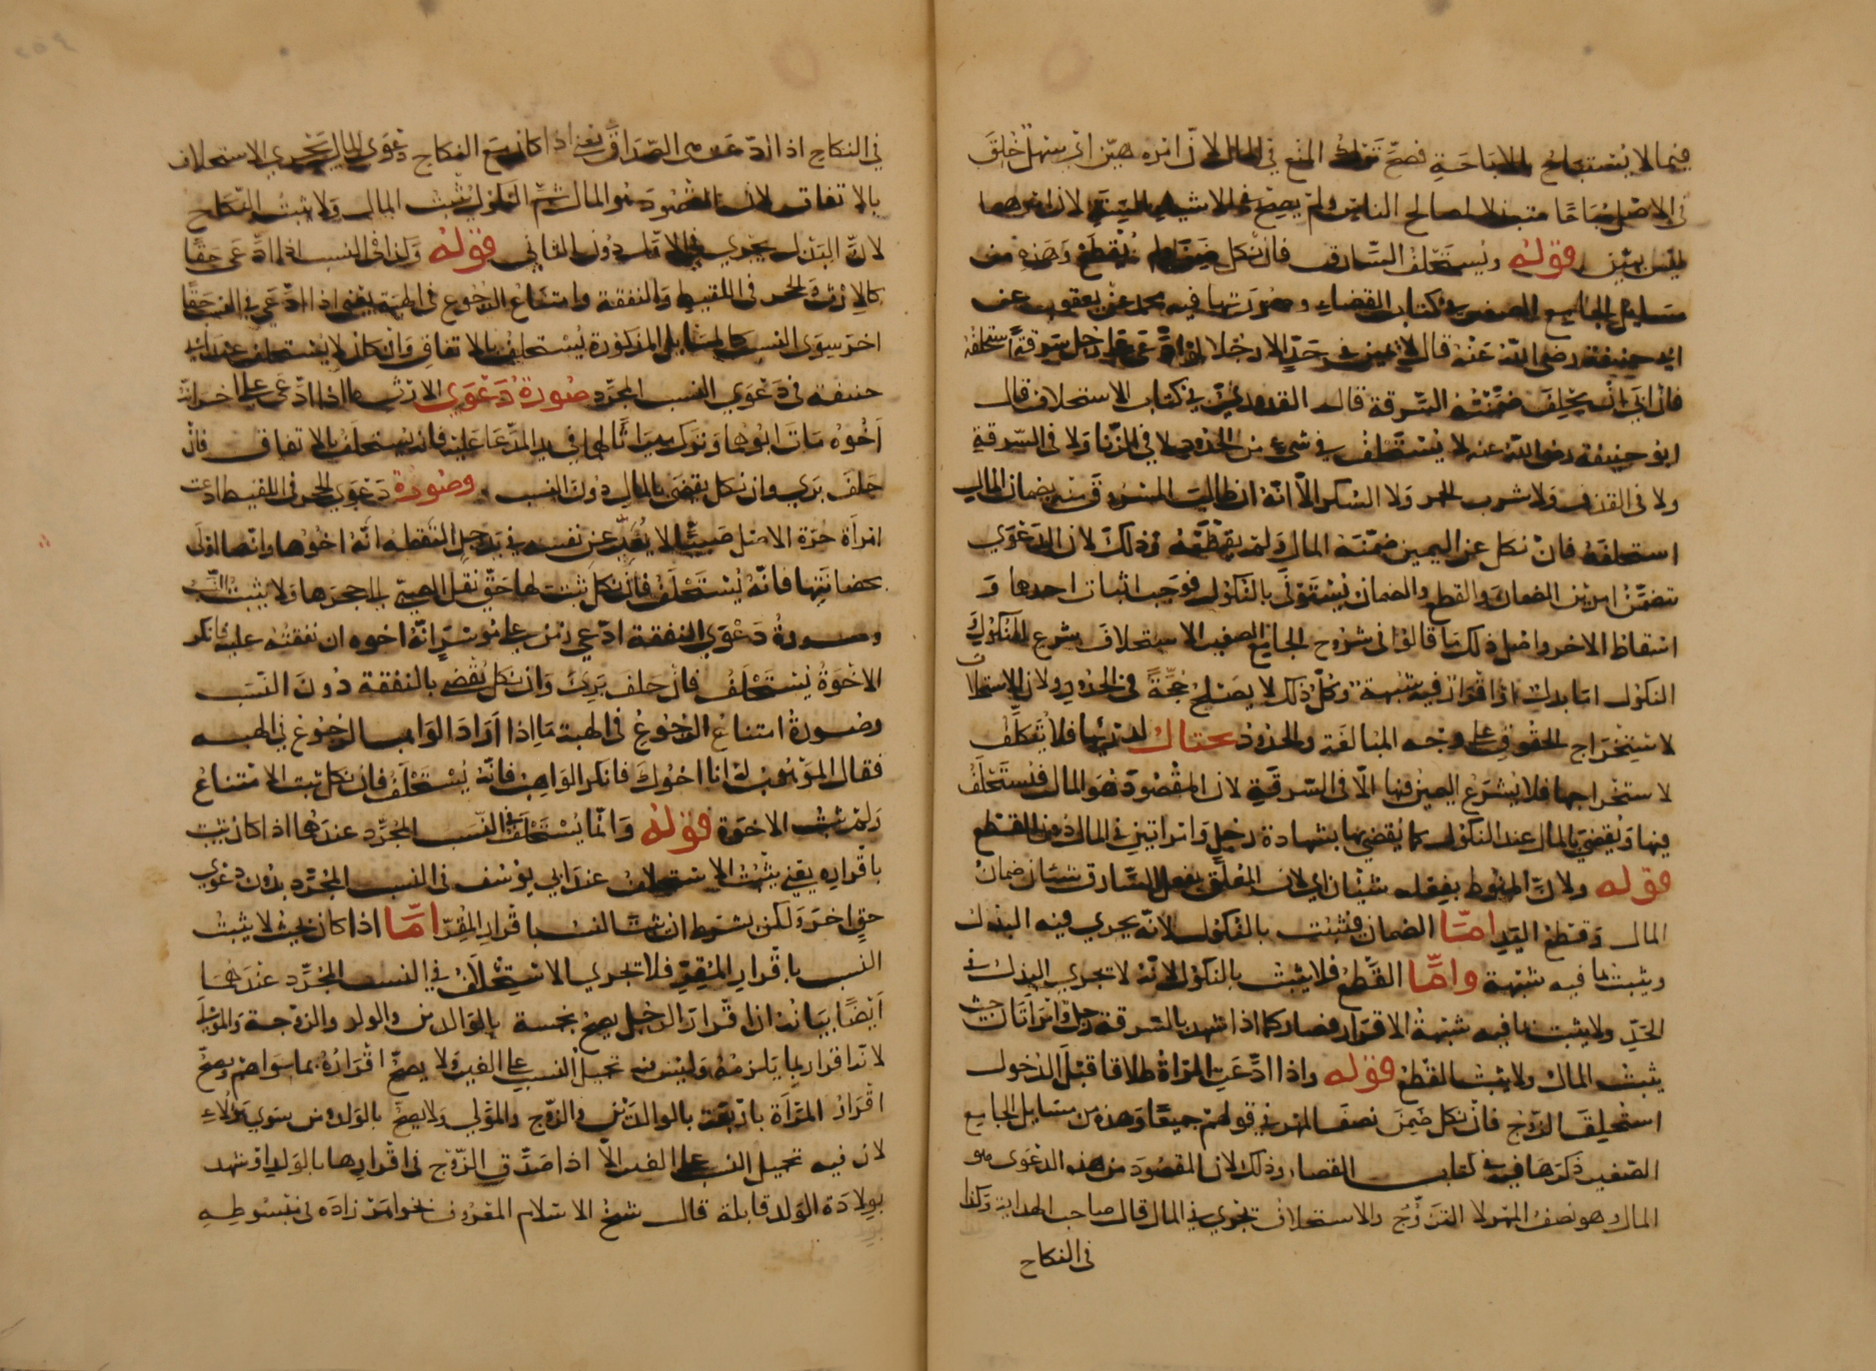 فيما لا يستباح بالاباحة فصح ترك المنع في المال لان امره هين اي سهل خلق
في الاصل مباحا مبتذلا لمصالح الناس ولم يصح في الاشياء الستة لان امرها
ليس بهين قوله ويستحلف السارق فان نكل ضمن ولم يقطع وهذه من
مسايل الجامع الصغير في كتاب القضاء وصورتها فيه محمد عن يعقوب عن
ابي حنيفة رضي الله عنه قال لا يمين في حد الا رجلا ادعى على رجل سرقة استحلفه
فان ابى ان يحلف ضمنته السرقة قال القدوري في كتاب الاستحلاف قال
ابو حنيفة رضي الله عنه لا يستحلف في شيء من الحدود لا في الزنا ولا في السرقة
ولا في القذف ولا شرب الخمر ولا السكر الا انه ان طالب المسروق منه بضمان المال
استحلفه فان نكل عن اليمين ضمنه المال ولم يقطعه وذلك لان الدعوى
تتضمن امرين الضمان والقطع والضمان يستوفى بالنكول فوجب اثبات احدها و
اسقاط الاخر واصل ذلك ما قالوا في شروح الجامع الصغير الاستحلاف شرع للنكول
النكول اما بدل او اقرار فيه شبهة وكل ذلك لا يصلح حجة في الحدود ولان الاستحلاف
لاستخراج الحقوق على وجه المبالغة والحدود يحتال لدرئها فلا يتكلف
لاستخراجها فلا يشرع اليمين فيها الا في السرقة لان المقصود هو المال فيستحلف
فيها ويقضى بالمال عند النكول كما يقضى بها بشهادة رجل وامراتين في المال دون القطع
قوله ولان المنوط بفعله شيئان اي لان المعلق بفعل السارق شيئان ضمان
المال وقطع اليد اما الضمان فيثبت بالنكول لانه يجري فيه البذل
ويثبت بما فيه شبهة واما القطع فلا يثبت بالنكول لانه لا يجري البذل في
الحد ولا يثبت بما فيه شبهة الاقرار فصار كما اذا شهد بالسرقة رجل وامراتان حيث
يثبت المال ولا يثبت القطع قوله واذا ادعت المراة طلاقا قبل الدخول
استحلف الزوج فان نكل ضمن نصف المهر في قولهم جميعا وهذه من مسايل الجامع
الصغير ذكرها فيه في كتاب القضاء وذلك لان المقصود من هذه الدعوى هو
المال وهو نصف المهر لا التزوج والاستحلاف يجري في المال قال صاحب الهداية وكذا
في النكاح
في النكاح اذا ادعت هي الصداق يعني اذا كان مع النكاح دعوى المال يجري الاستحلاف
بالاتفاق لان المقصود هو المال ثم النكول يثبت المال ولا يثبت النكاح
لان البذل يجري في الاول دون الثاني قوله وكذا في النسب اذا ادعى حقا
كالارث والحجر في اللقيط والنفقة وامتناع الرجوع في الهبة يعني اذا ادعي في النسب حقا
اخر سوى النسب كالمسايل المذكورة يستحلف بالاتفاق وان كان لا يستحلف عند ابي
حنيفه في دعوى النسب المجرد صورة دعوى الارث ما اذا ادعى على اخر انه
اخوه مات ابوهما وترك ميراثا لهما في يد المدعا عليه فانه يستحلف بالاتفاق فان
حلف بري وان نكل يقضى بالمال دون النسب وصورة دعوى الحجر في اللقيط ادعت
امراة حرة الاصل صبيا لا يعبر عن نفسه في يد رجل التقطه انه اخوها وانها اولى
بحضانتها فانه يستحلف فان نكل ثبت لها حق نقل الصبي الى حجرها ولا يثبت النسب
وصورة دعوى النفقة ادعى زمن على موسر انه اخوه ان نفقته عليه فانكر
الاخوة يستحلف فان حلف بريئ وان نكل يقضى بالنفقة دون النسب
وصورة امتناع الرجوع في الهبة ما اذا اراد الواهب الرجوع في الهبه
فقال الموهوب له انا اخوك فانكر الواهب فانه يستحلف فان نكل ثبت الامتناع
ولم يثبت الاخوة قوله وانما يستحلف في النسب المجرد عندهما اذا كان يثبت
باقراره يعني يثبت الاستحلاف عند ابي يوسف في النسب المجرد بدون دعوى
حق اخر ولكن بشرط ان يثبت النسب باقرار المقر اما اذا كان بحيث لا يثبت
النسب باقرار المقر فلا تجري الاستحلاف في النسب المجرد عندهما
ايضا بيانه ان اقرار الرجل يصح بخمسة بالوالدين والولد والزوجة والمولى
لانه اقرار بما يلزمه وليس فيه تحميل النسب على الغير ولا يصح اقراره بما سواهم ويصح
اقرار المراة باربعة بالوالدين والزوج والمولى ولا يصح بالولد ومن سوى هولاء
لان فيه تحميل النسب على الغير الا اذا صدق الزوج في اقرارها بالولد او شهد
بولادة الولد قابلة قال شيخ الاسلام المعروف بخواهر زاده في مبسوطه